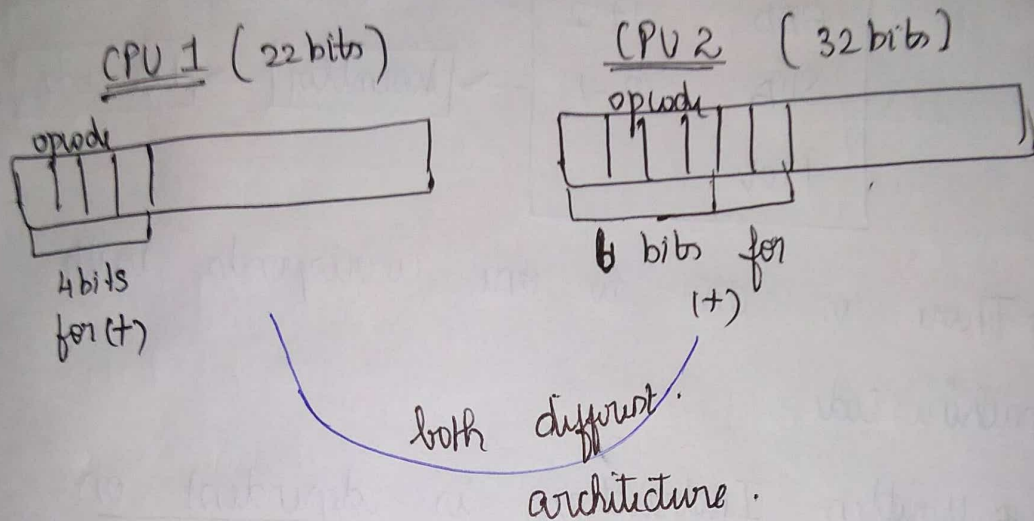 CPU 1 (22 bits)
opcode
4 bits
for (+)
CPU 2 (32 bits)
opcode
6 bits for
(+)
both different.
architecture.